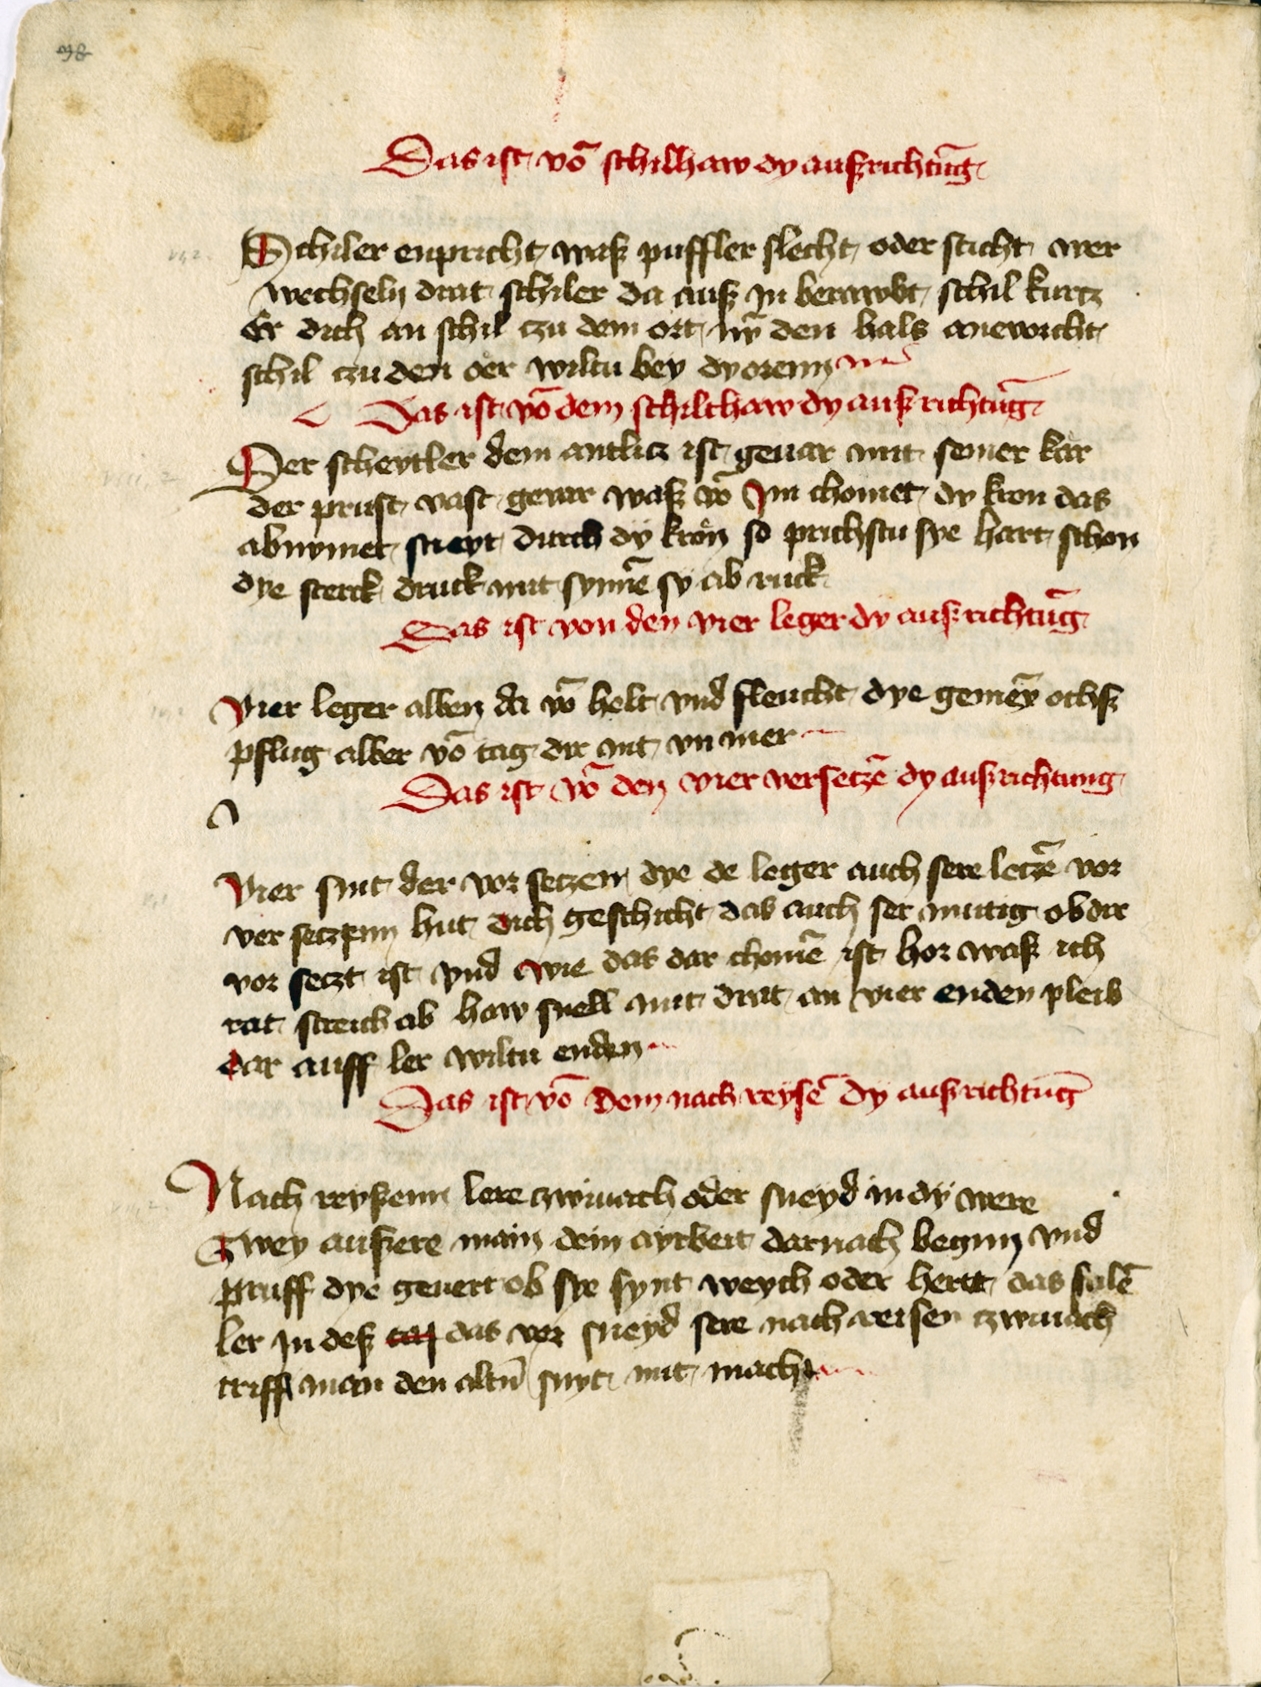 Das ist võ schilhaw dy auſzrichtũg
Schiler enpricht waſz puffler slecht oder sticht wer
wechseln drat schiler da auſz jn berawbt schil kurtz
Er dich an schil czu dem ort nȳ den hals anevorcht
schil czu den oer wiltu bey dy orenn
Das ist võ dem schilthaw dy auſzrichtũg
Der scheytler dem antlicz ist gevar mit seiner kar
der prust vast gevar waſz võ Im chomet dy kron das
abnymet sneyt durch dy kron so prichstu sye hart schon
dye sterck druck mit synnẽ sy ab ruck
Das ist von den vier leger dy auſzrichtũg
Vier leger allen da võ helt vnd fleucht dye gemeȳ ochſz
pflug alber võ tag dir nit vnmer
Das ist võ den vier versetzẽ dy auſzrichtung
Vier sint der vor setzen dye de leger auch sere letzẽ vor
ver seczenn hut dich geschicht das auch ser mutig ob dir
vor seczt ist vnd wie das dar chomẽ ist hor waſz ich
rat streich ab haw snell mit drat an vier enden pleib
dar auff ler wiltu enden
Das ist võ dem nach reysẽ dy auſzrichtũg
Nach reyſzenn lere czwiuach oder sneyd in dy were
Czwey auſzere main dein aytbeit darnach beginn vnd
pruff dye geuert ob sye synt weych oder hertt das fulẽ
ler Jn deſz das ver sneyd sere nach reisen czwiuach
triff man den altñ snyt mit macht